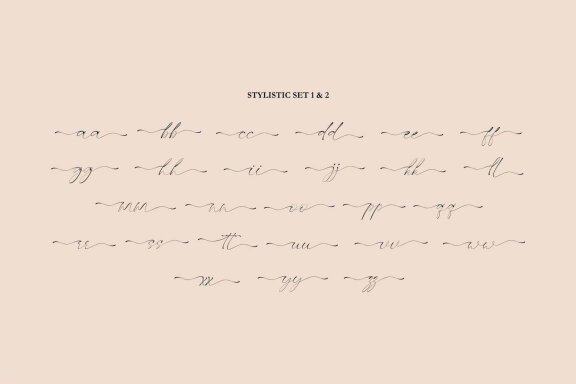 STYLISTIC SET 1 & 2
aa bb cc dd ee ff
gg hh ii jj kk ll
mm nn oo pp qq
rr ss tt uu vv ww
xx yy zz